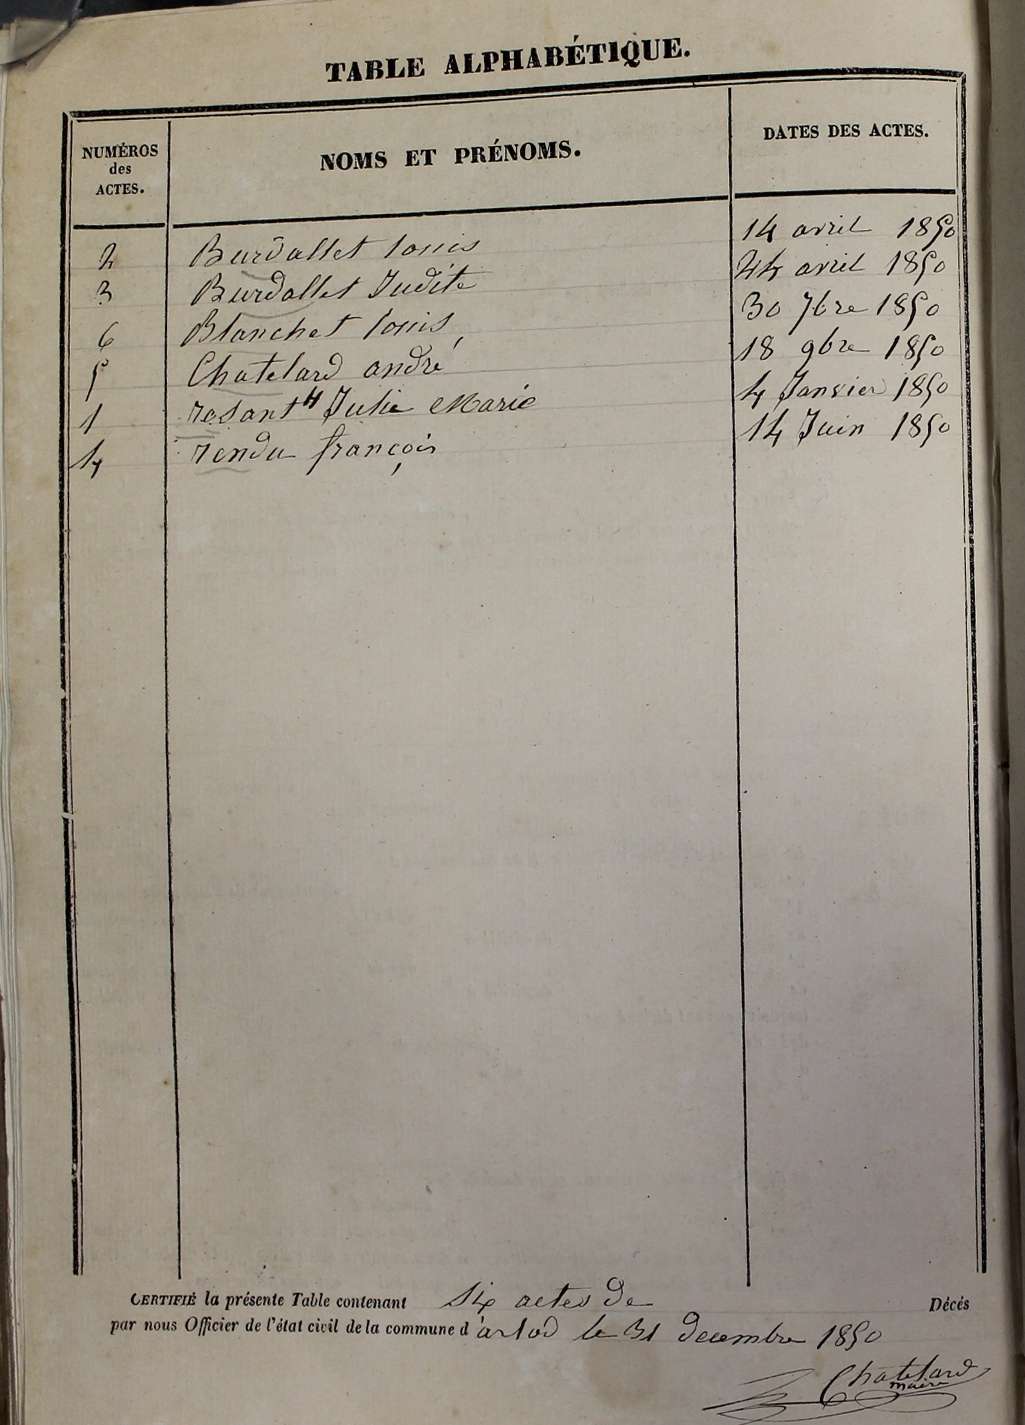 TABLE ALPHABÉTIQUE.
NUMÉROS
des
ACTES.
NOMS ET PRÉNOMS.
DATES DES ACTES.
2 Burdallet Louis 14 avril 1850
3 Burdallet Judite 24 avril 1850
6 Blanchet Louis 30 7bre 1850
5 Chatelard andré 18 9bre 1850
1 Julie Marie 4 Janvier 1850
4 rendu françois 14 Juin 1850
CERTIFIÉ la présente Table contenant six actes de Décés
par nous Officier de l'état civil de la commune d'arlod le 31 decembre 1850
Chatelard
maire